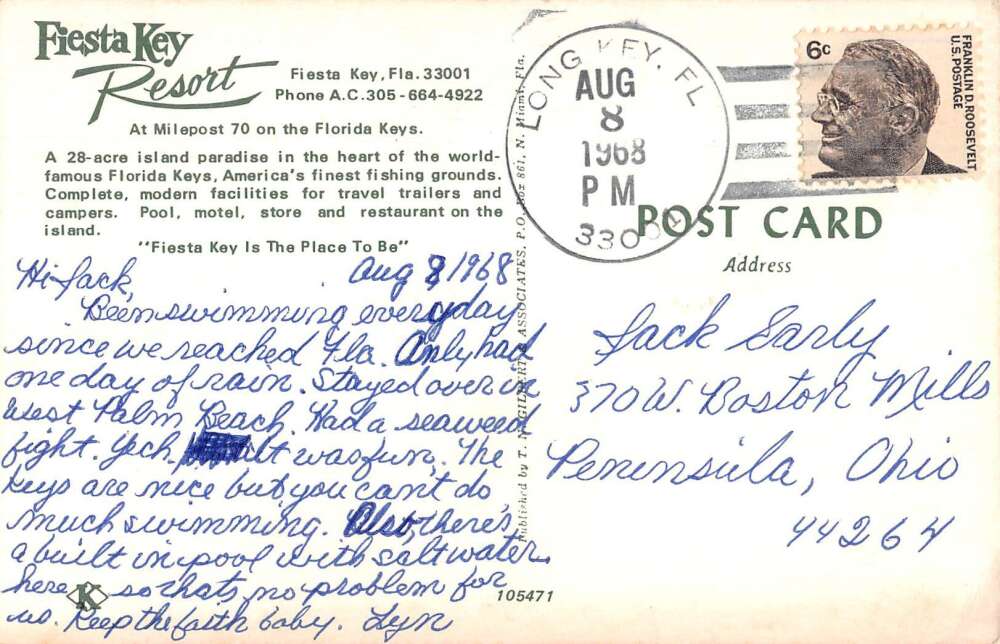 Fiesta Key
Resort
Fiesta Key, Fla. 33001
Phone A.C. 305-664-4922
At Milepost 70 on the Florida Keys.
A 28-acre island paradise in the heart of the world-
famous Florida Keys, America's finest fishing grounds.
Complete, modern facilities for travel trailers and
campers. Pool, motel, store and restaurant on the
island.
"Fiesta Key Is The Place To Be"
Aug 8, 1968
Hi Jack,
Been swimming everyday
since we reached Fla. Only had
one day of rain. Stayed over in
West Palm Beach. Had a seaweed
fight. Yech. It was fun. The
Keys are nice but you can't do
much swimming. Also, there's
a built in pool with salt water
here so thats no problem for
us. Keep the faith baby. Lyn
K
105471
Published by T. N. Gilbert & Associates, P.O. Box 861, N. Miami, Fla.
LONG KEY, FL
AUG
8
1968
PM
33001
6c
FRANKLIN D. ROOSEVELT
U.S. POSTAGE
POST CARD
Address
Jack Early
370 W. Boston Mills
Peninsula, Ohio
44264